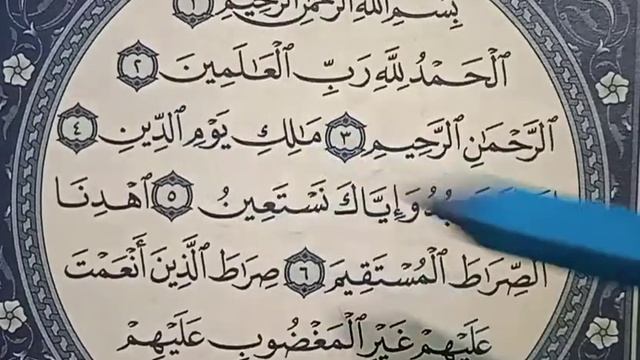 بِسْمِ ٱللَّهِ ٱلرَّحْمَٰنِ ٱلرَّحِيمِ ١
ٱلْحَمْدُ لِلَّهِ رَبِّ ٱلْعَٰلَمِينَ ٢
ٱلرَّحْمَٰنِ ٱلرَّحِيمِ ٣ مَٰلِكِ يَوْمِ ٱلدِّينِ ٤
وَإِيَّاكَ نَسْتَعِينُ ٥ ٱهْدِنَا
ٱلصِّرَٰطَ ٱلْمُسْتَقِيمَ ٦ صِرَٰطَ ٱلَّذِينَ أَنْعَمْتَ
عَلَيْهِمْ غَيْرِ ٱلْمَغْضُوبِ عَلَيْهِمْ